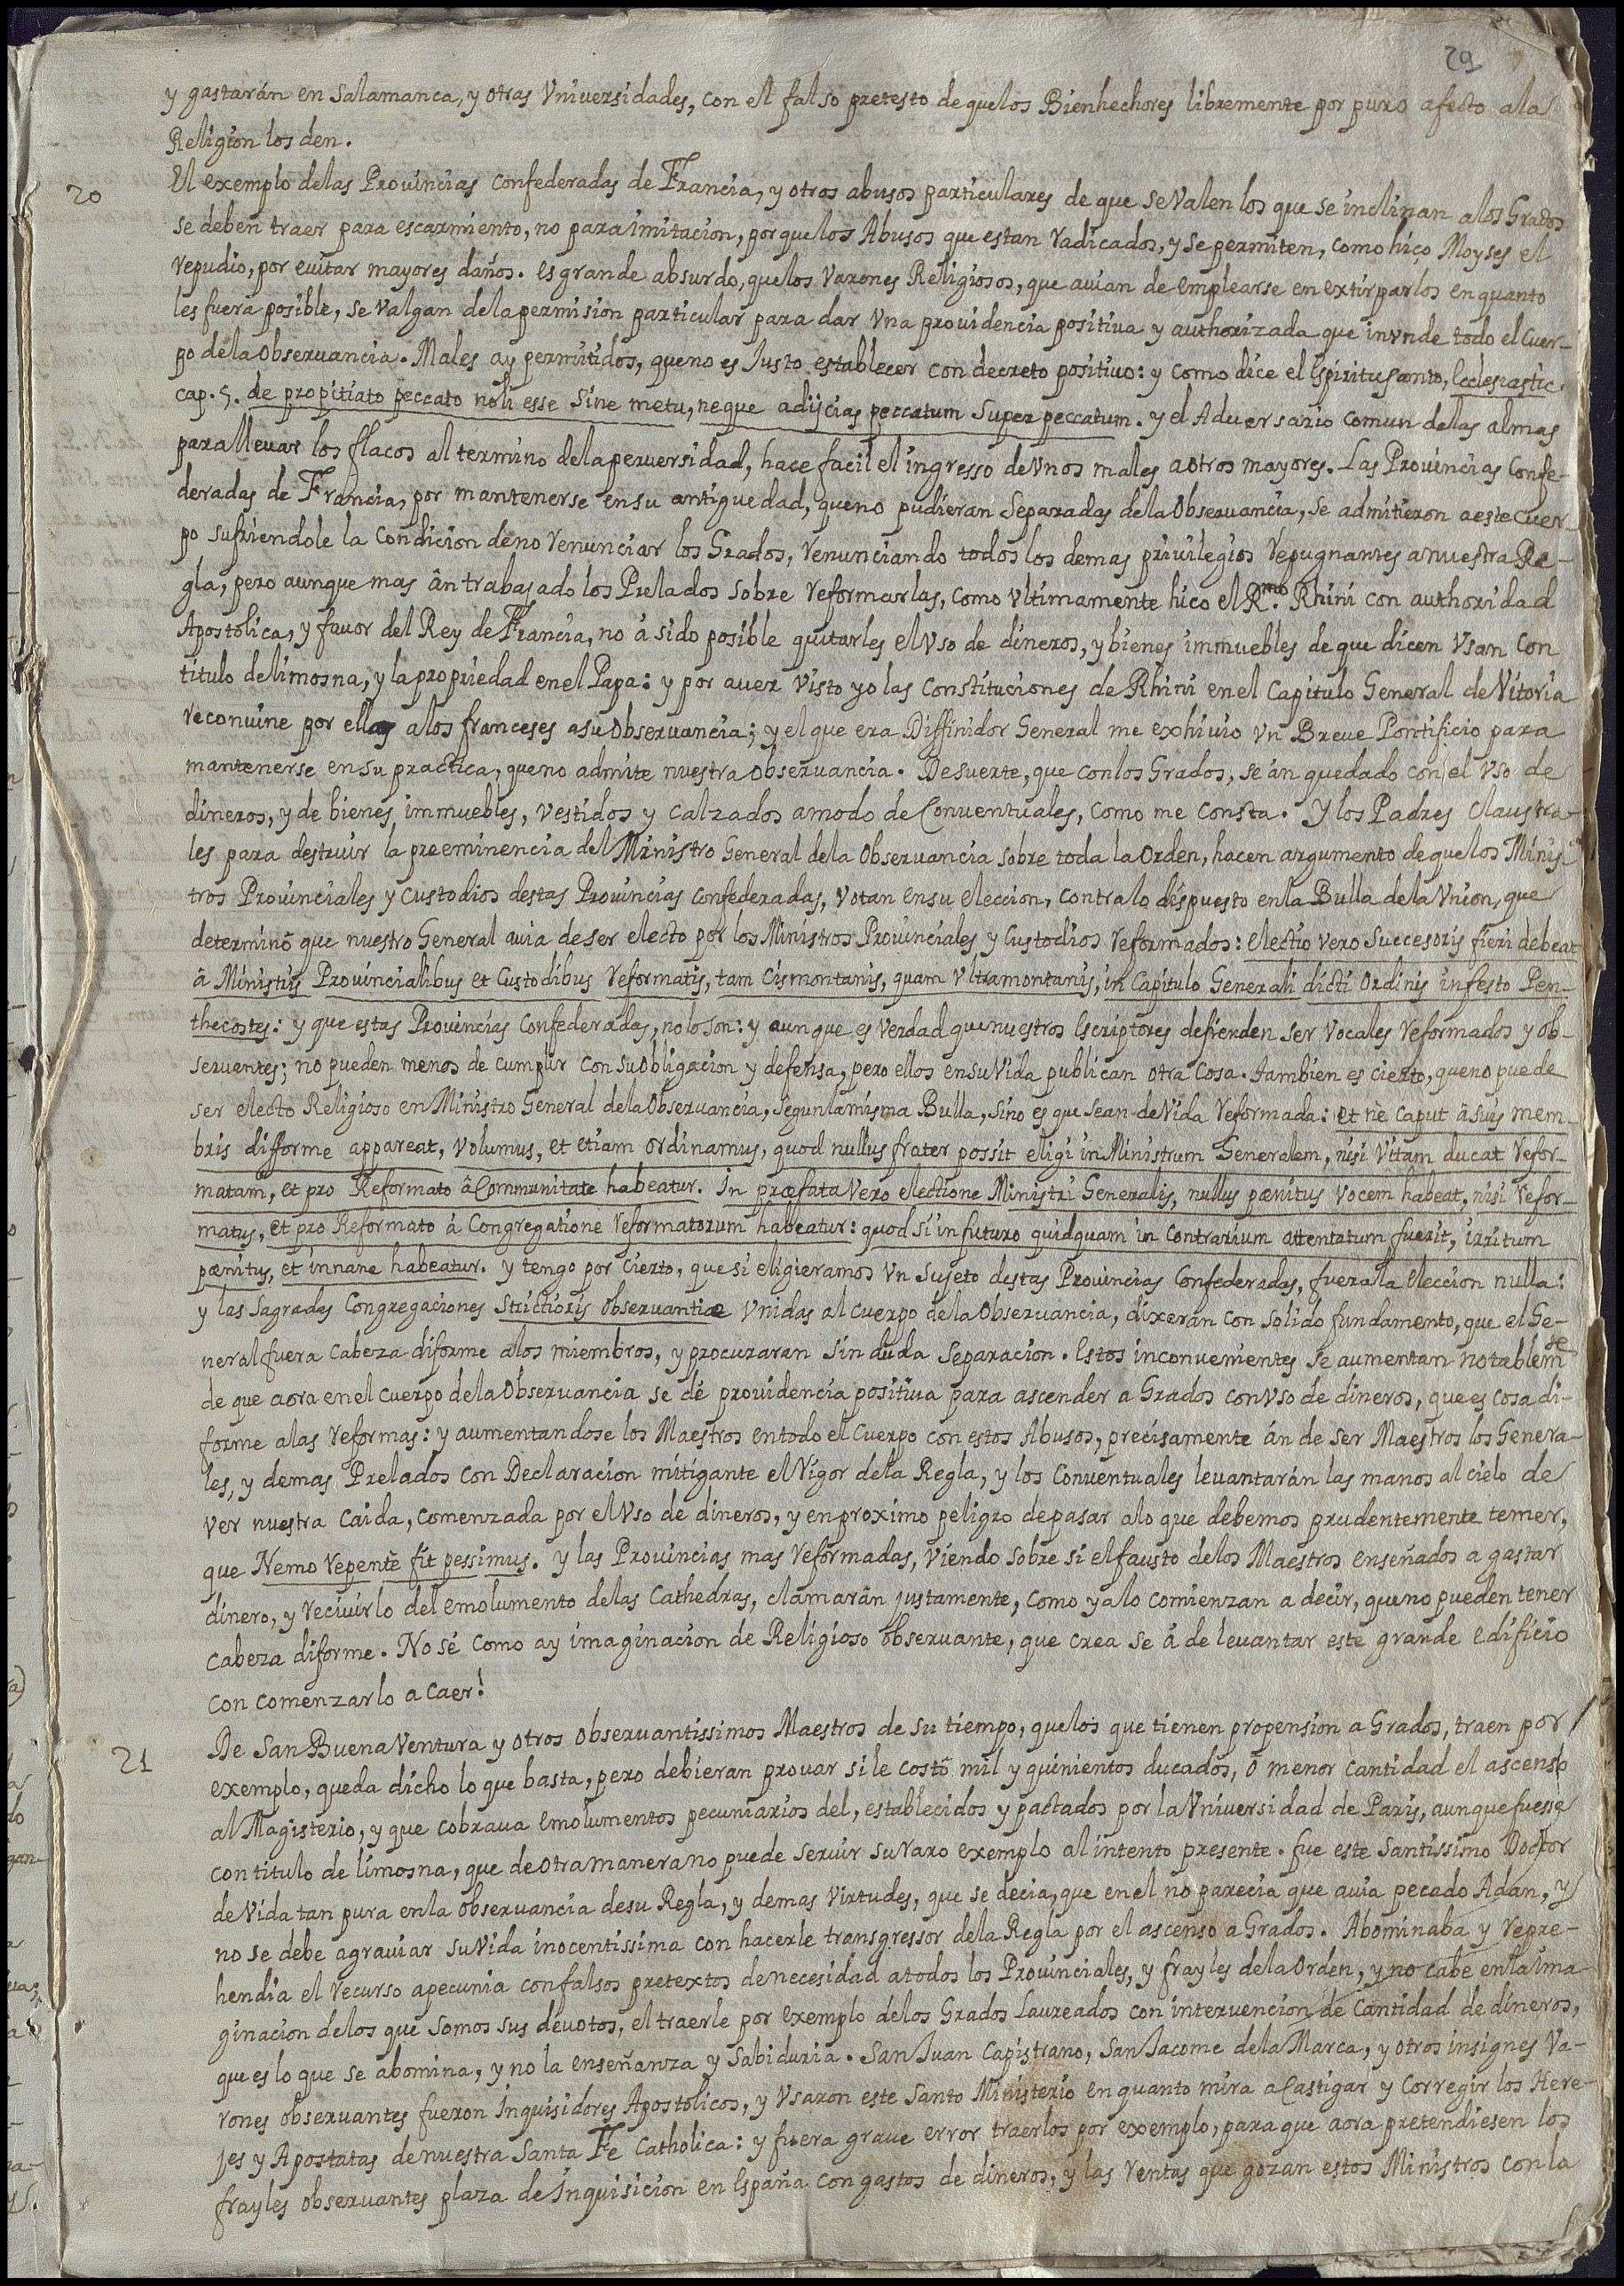 29
y gastarán en Salamanca, y otras Vniversidades, con el falso pretesto de que los Bienhechores libremente por puro afecto a la
Religion los den.
20 El exemplo de las Provincias confederadas de Francia, y otros abusos particulares de que se valen los que se inclinan a los Grados
se deben traer para escarmiento, no para imitacion, porque los Abusos que estan radicados, y se permiten, como hiço Moyses el
repudio, por euitar mayores daños. es grande absurdo, que los Varones Religiosos, que auian de emplearse en extirparlos en quanto
les fuera posible, se valgan de la permision particular para dar vna prouidencia positiua y authorizada que invnde todo el Cuer-
po de la Obseruancia. Males ay permitidos, que no es Justo establecer con decreto positiuo: y como dice el Espiritu Santo, Ecclesiastic.
cap. 5. de propitiato peccato noli esse sine metu, neque adijcias peccatum super peccatum. y el Aduersario comun de las almas
para lleuar los flacos al termino de la peruersidad, hace facil el ingresso de vnos males a otros mayores. Las Prouincias Confe-
deradas de Francia, por mantenerse en su antiguedad, que no pudieran Separadas de la Obseruancia, se admitieron a este Cuer-
po sufriendole la Condicion de no renunciar los Grados, renunciando todos los demas priuilegios repugnantes a nuestra Re-
gla, pero aunque mas ân trabajado los Prelados sobre reformarlas, como vltimamente hico el R.mo Rhini con authoridad
Apostolica, y fauor del Rey de Francia, no á sido posible quitarles el vso de dineros, y bienes immuebles de que dicen vsan con
titulo de limosna, y la propriedad en el Papa: y por auer visto yo las Constituciones de Rhini en el Capitulo General de Vitoria
reconuine por ellas a los franceses a su Obseruancia; y el que era Diffinidor General me exhiuio vn Breue Pontificio para
mantenerse en su practica, que no admite nuestra Obseruancia. De suerte, que con los Grados, se án quedado con el vso de
dineros, y de bienes immuebles, vestidos y calzados a modo de Conuentuales, como me consta. Y los Padres Claustra-
les para destruir la preeminencia del Ministro General de la Obseruancia sobre toda la Orden, hacen argumento de que los Minis-
tros Prouinciales y Custodios destas Prouincias confederadas, votan en su eleccion, contra lo dispuesto en la Bulla de la Vnion, que
determinó que nuestro General auia de ser electo por los Ministros Prouinciales y Custodios reformados: electio vero Successoris fieri debeat
â Ministris Prouincialibus et Custodibus reformatis, tam Cismontanis, quam vltramontanis, in Capitulo Generali dicti Ordinis in festo Pen-
thecostes: y que estas Prouincias Confederadas, no lo son: y aunque es verdad que nuestros Escriptores defienden ser vocales reformados y ob-
seruantes; no pueden menos de cumplir con su obligacion y defensa, pero ellos en su vida publican otra cosa. tambien es cierto, que no puede
ser electo Religioso en Ministro General de la Obseruancia, segun la misma Bulla, sino es que sean de vida reformada: et ne caput â suis mem-
bris difforme appareat, volumus, et etiam ordinamus, quod nullus frater possit eligi in Ministrum Generalem, nisi vitam ducat refor-
matam, et pro Reformato â Communitate habeatur. In præfata vero electione Ministri Generalis, nullus pænitus vocem habeat, nisi refor-
matus, et pro Reformato á Congregatione reformatorum habeatur: quod si in futuro quidquam in contrarium attentatum fuerit, irritum
pænitus, et innane habeatur. y tengo por cierto, que si eligieramos vn Sujeto destas Prouincias Confederadas, fuera la eleccion nulla:
y las Sagradas Congregaciones Strictioris Obseruantiæ vnidas al Cuerpo de la Obseruancia, dixeran con solido fundamento, que el Ge-
neral fuera cabeza diforme a los miembros, y procuraran sin duda Separacion. Estos inconuenientes se aumentan notablemte
de que aora en el cuerpo de la Obseruancia se dé prouidencia positiua para ascender a Grados con vso de dineros, que es cosa di-
forme a las reformas: y aumentandose los Maestros en todo el Cuerpo con estos Abusos, precisamente án de ser Maestros los Genera-
les, y demas Prelados con Declaracion mitigante el Vigor de la Regla, y los Conuentuales leuantarán las manos al cielo de
ver nuestra caida, comenzada por el vso de dineros, y en proximo peligro de pasar a lo que debemos prudentemente temer,
que Nemo repente fit pessimus. y las Prouincias mas reformadas, viendo sobre si el fausto de los Maestros enseñados a gastar
dinero, y reciuirlo del emolumento de las Cathedras, clamarân justamente, como ya lo comienzan a decir, que no pueden tener
cabeza diforme. No sé como ay imaginacion de Religioso obseruante, que crea se á de leuantar este grande edificio
con comenzarlo a caer!
21 De San BuenaVentura y otros obseruantissimos Maestros de su tiempo, que los que tienen propension a Grados, traen por
exemplo, queda dicho lo que basta, pero debieran prouar si le costó mil y quinientos ducados, ô menor cantidad el ascenso
al Magisterio, y que cobraua emolumentos pecuniarios del, establecidos y pactados por la Vniuersidad de Paris, aunque fuesse
con titulo de limosna, que de otra manera no puede seruir su raro exemplo al intento presente. fue este Santissimo Doctor
de Vida tan pura en la obseruancia de su Regla, y demas Virtudes, que se decia, que en el no parecia que auia pecado Adan, y
no se debe agrauiar su Vida inocentissima con hacerle transgressor de la Regla por el ascenso a Grados. Abominaba y repre-
hendia el recurso a pecunia con falsos pretextos de necesidad a todos los Prouinciales, y frayles de la Orden, y no cabe en la ima-
ginacion de los que somos sus deuotos, el traerle por exemplo de los Grados Laureados con interuencion de Cantidad de dineros,
que es lo que se abomina, y no la enseñanza y Sabiduria. San Juan Capistrano, San Jacome de la Marca, y otros insignes Va-
rones obseruantes fueron Inquisidores Apostolicos, y vsaron este Santo Ministerio en quanto mira a Castigar y Corregir los Here-
jes y Apostatas de nuestra Santa Fe Catholica: y fuera graue error traerlos por exemplo, para que aora pretendiesen los
frayles obseruantes plaza de Inquisicion en España con gastos de dineros, y las rentas que gozan estos Ministros con la